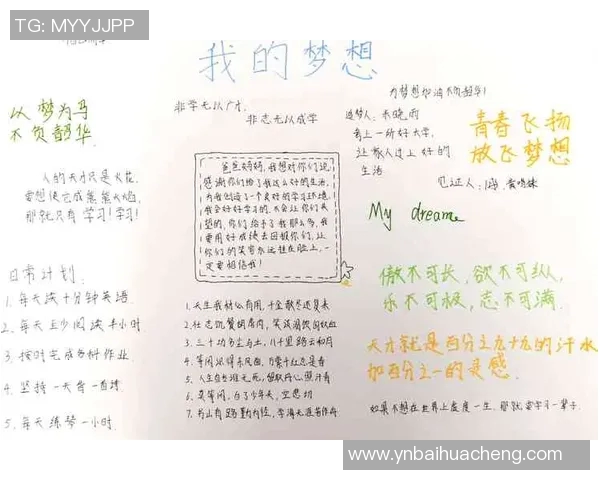 TG: MYYJJPP
我的梦想
以梦为马
不负韶华
人的天才只是火花,
要想使它成熊熊火焰,
那就只有学习!学习!
日常计划
1、每天读十分钟英语
2、每天至少阅读半小时
3、按时完成各科作业
4、坚持一天背一首诗
5、每天练琴一小时
非学无以广才,
非志无以成学
爸爸妈妈,我想对你们说,
感谢你们给了我这么好的生活,
为我创造了一个良好的学习环境,
我会好好学习的,不会让你们失
望的,你们给予了我那么多,我
要用好成绩去回报你们,让
你们的笑容永远挂在脸上,一
定要相信我!
1、天生我材必有用,千金散尽还复来
2、壮志饥餐胡虏肉,笑谈渴饮匈奴血
3、三十功名尘与土,八千里路云和月
4、等闲识得东风面,万紫千红总是春
5、人生自古谁无死,留取丹心照汗青
6、莫等闲,白了少年头,空悲切
7、书山有路勤为径,学海无涯苦作舟
为梦想加油不负韶华!
追梦人:
考上一所好大学,
让家人过上好的
生活
见证人:妈
青春飞扬
放飞梦想
My dream
傲不可长,欲不可纵,
乐不可极,志不可满.
天才就是百分之九十九的汗水
加百分之一的灵感
如果不想在世界上虚度一生,那就要学习一辈子.
www.ynbaihuacheng.com